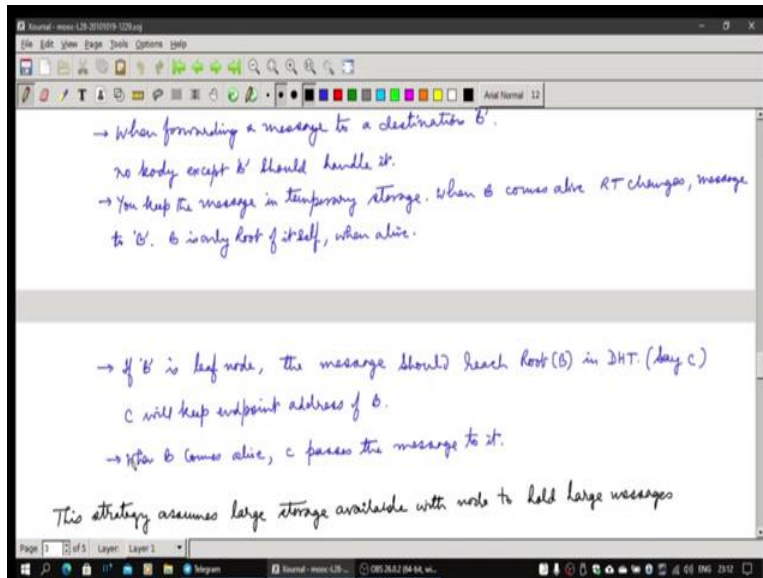 Xournal - mooc-L28-20101019-1229.xoj
File Edit View Page Tools Options Help
Arial Normal 12
→ When forwarding a message to a destination 'B'.
no body except B' should handle it.
→ You keep the message in temporary storage. When B comes alive RT changes, message
to 'B'. B is only Root of itself, when alive.
→ If 'B' is leaf node, the message should reach Root(B) in DHT. (Say C)
C will keep endpoint address of B.
→ When B comes alive, C passes the message to it.
This strategy assumes large storage available with node to hold large messages
Page 3 of 5 Layer: Layer 1
Telegram Xournal - mooc-L28-... OBS 26.0.2 (64-bit, wi... ENG 2312